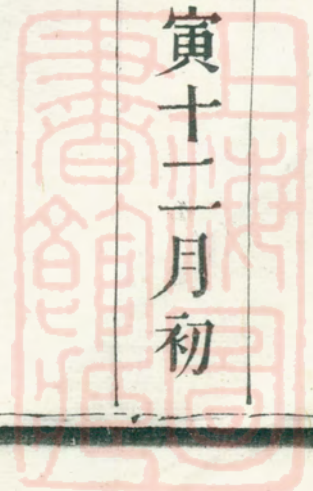 寅十二月初